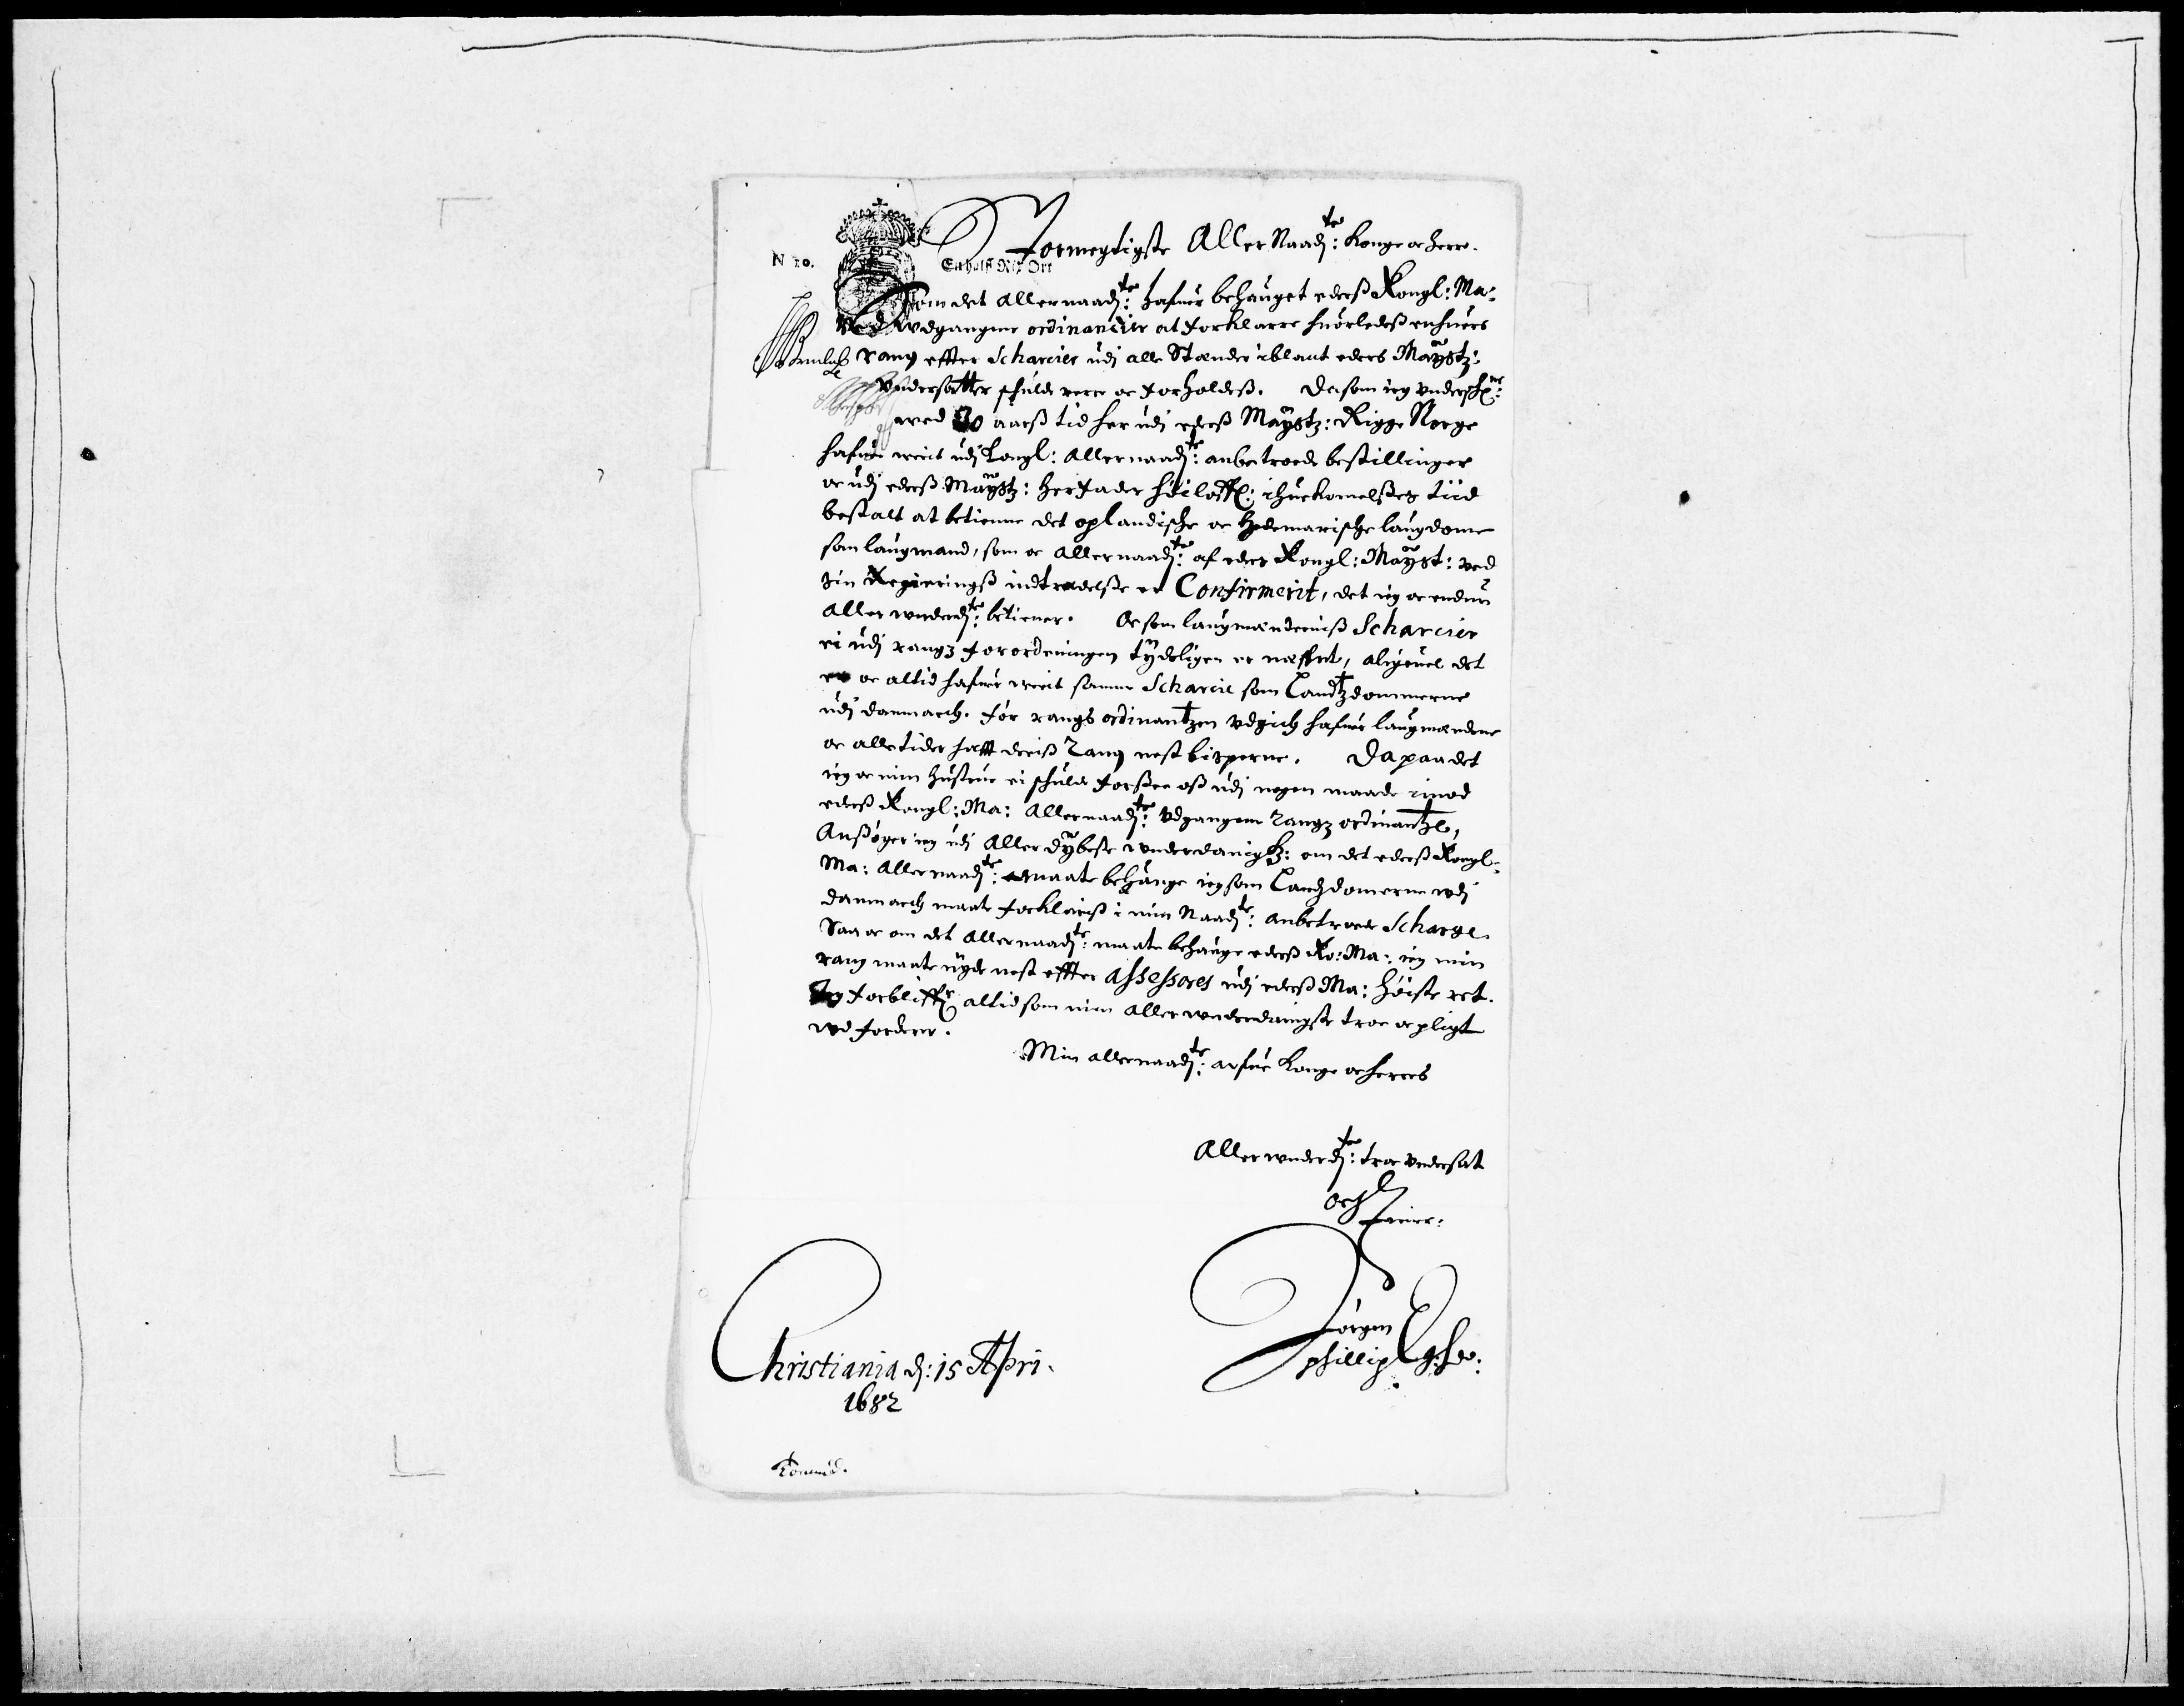 N 20.
En halff Rix Ort
Stormegtigste Aller Naadj:te Konge oc herre.
Som det allernaadj:te hafuer behauget ederß Kongl: Ma:
Ved udgangene ordinancier at forklarre huorledeß enhuers
Rang effter Scharcier udj alle Stænder iblant eders Maÿstz:
Vndersatter schulde vere oc forholdeß. Da som ieg
30 aarß tid her udj ederß Maÿstz: Rigge Norge
hafuer verit udj Kongl: allernaadj:te anbetroede bestillinger
oc udj ederß Maÿstz: her fader høiloffl: ihuekomelßes tiid
bestalt at betienne det oplandische oc Hedemarische laugdome
som laugmand, som oc allernaadj:te af eders Kongl: Maÿst: ved
sin Regieringß indtredelße er Confirmerit, det ieg oc endnu
aller underdj:te betiener. Oc som laugmænderniß Scharcier
ei udj rangz forordeningen tÿdeligen er neffnt, aligeuel det
er oc altid hafuer verit samme Scharcie som Landtzdommerne
udj danmarch. før rangs ordinantzen udgich hafuer laugmændene
oc alletider hafft deriß Rang nest bisperne. Da paa det
ieg oc min hustrue ei schulde forßee oß udj nogen maade imod
ederß Kongl: Ma: Allernaadj:te udgangene Rangz ordinantze,
Anßøger ieg udj Aller dÿbeste underdanighz: om det ederß Kongl:
Ma: allernaadj:te maate behauge ieg som Landzdomerne udj
danmarch maate forklariß i min Naadj:te anbetroede Scharge.
Saa oc om det allernaadj:te maate behauge ederß Ko: Ma: ieg min
rang maate nyde nest effter assessores udj ederß Ma: høiste ret.
Jeg forbliffr altid som min aller underdanigste troe oc pligt
udfordrer.
Min allernaadj:te arfue Konge oc herres
Aller underdj:te troe undersat
och
tiener.
Jørgen
phillip
Christiania dj: 15 Apri.
1682